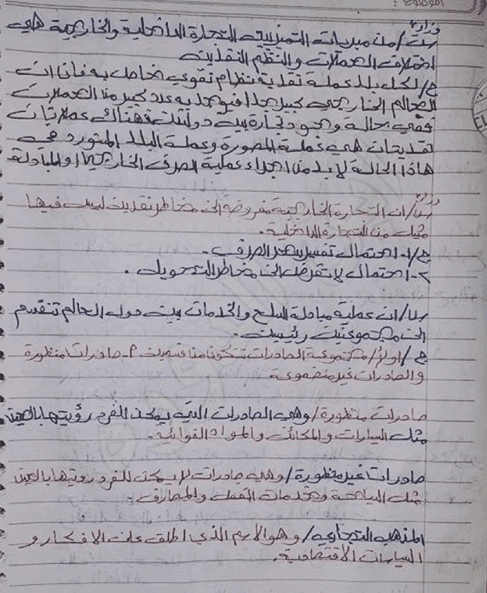 الموضوع:
وزاري
س/ من مبررات التمييز بين التجارة الداخلية والخارجية هي
اختلاف العملات والنظم النقدية
ج/ لكل بلد عملة نقدية ونظام نقدي خاص به فاذا ان
العالم الخارجي كبير جدا فيوجد به عدد كبير من العملات
ففي حالة وجود تجارة بين دولتين فهناك عملتان
نقديتان هي عملة المصدرة وعملة البلد المستورد في
هاذا الحالة لابد من اجراء عملية الصرف الخارجي او المبادلة
وزاري
س/ ان التجارة الخارجية معروضة الى مخاطر نقدية ليس فيها
مثيل من التجارة الداخلية.
ج/ ١- احتمال تغير سعر الصرف.
٢- احتمال لا تتعرض الى مخاطر التحويل.
س/ ان عملية مبادلة السلع والخدمات بين دول العالم تنقسم
الى مجموعتين رئيسين.
ج/ اولاً/ مجموعة الصادرات تتكون من قسمين ٢. صادرات منظورة
والصادرات غير منظورة.
صادرات منظورة/ وهي الصادرات التي يمكن للفرد رؤيتها بالعين
مثل السيارات والمكائن والمواد الغذائية.
صادرات غير منظورة/ وهي صادرات لا يمكن للفرد رؤيتها بالعين
مثل السياحة وخدمات النقل والمصارف.
المذهب التجاري/ وهو الاسم الذي اطلق على الافكار و
السياسات الاقتصادية.